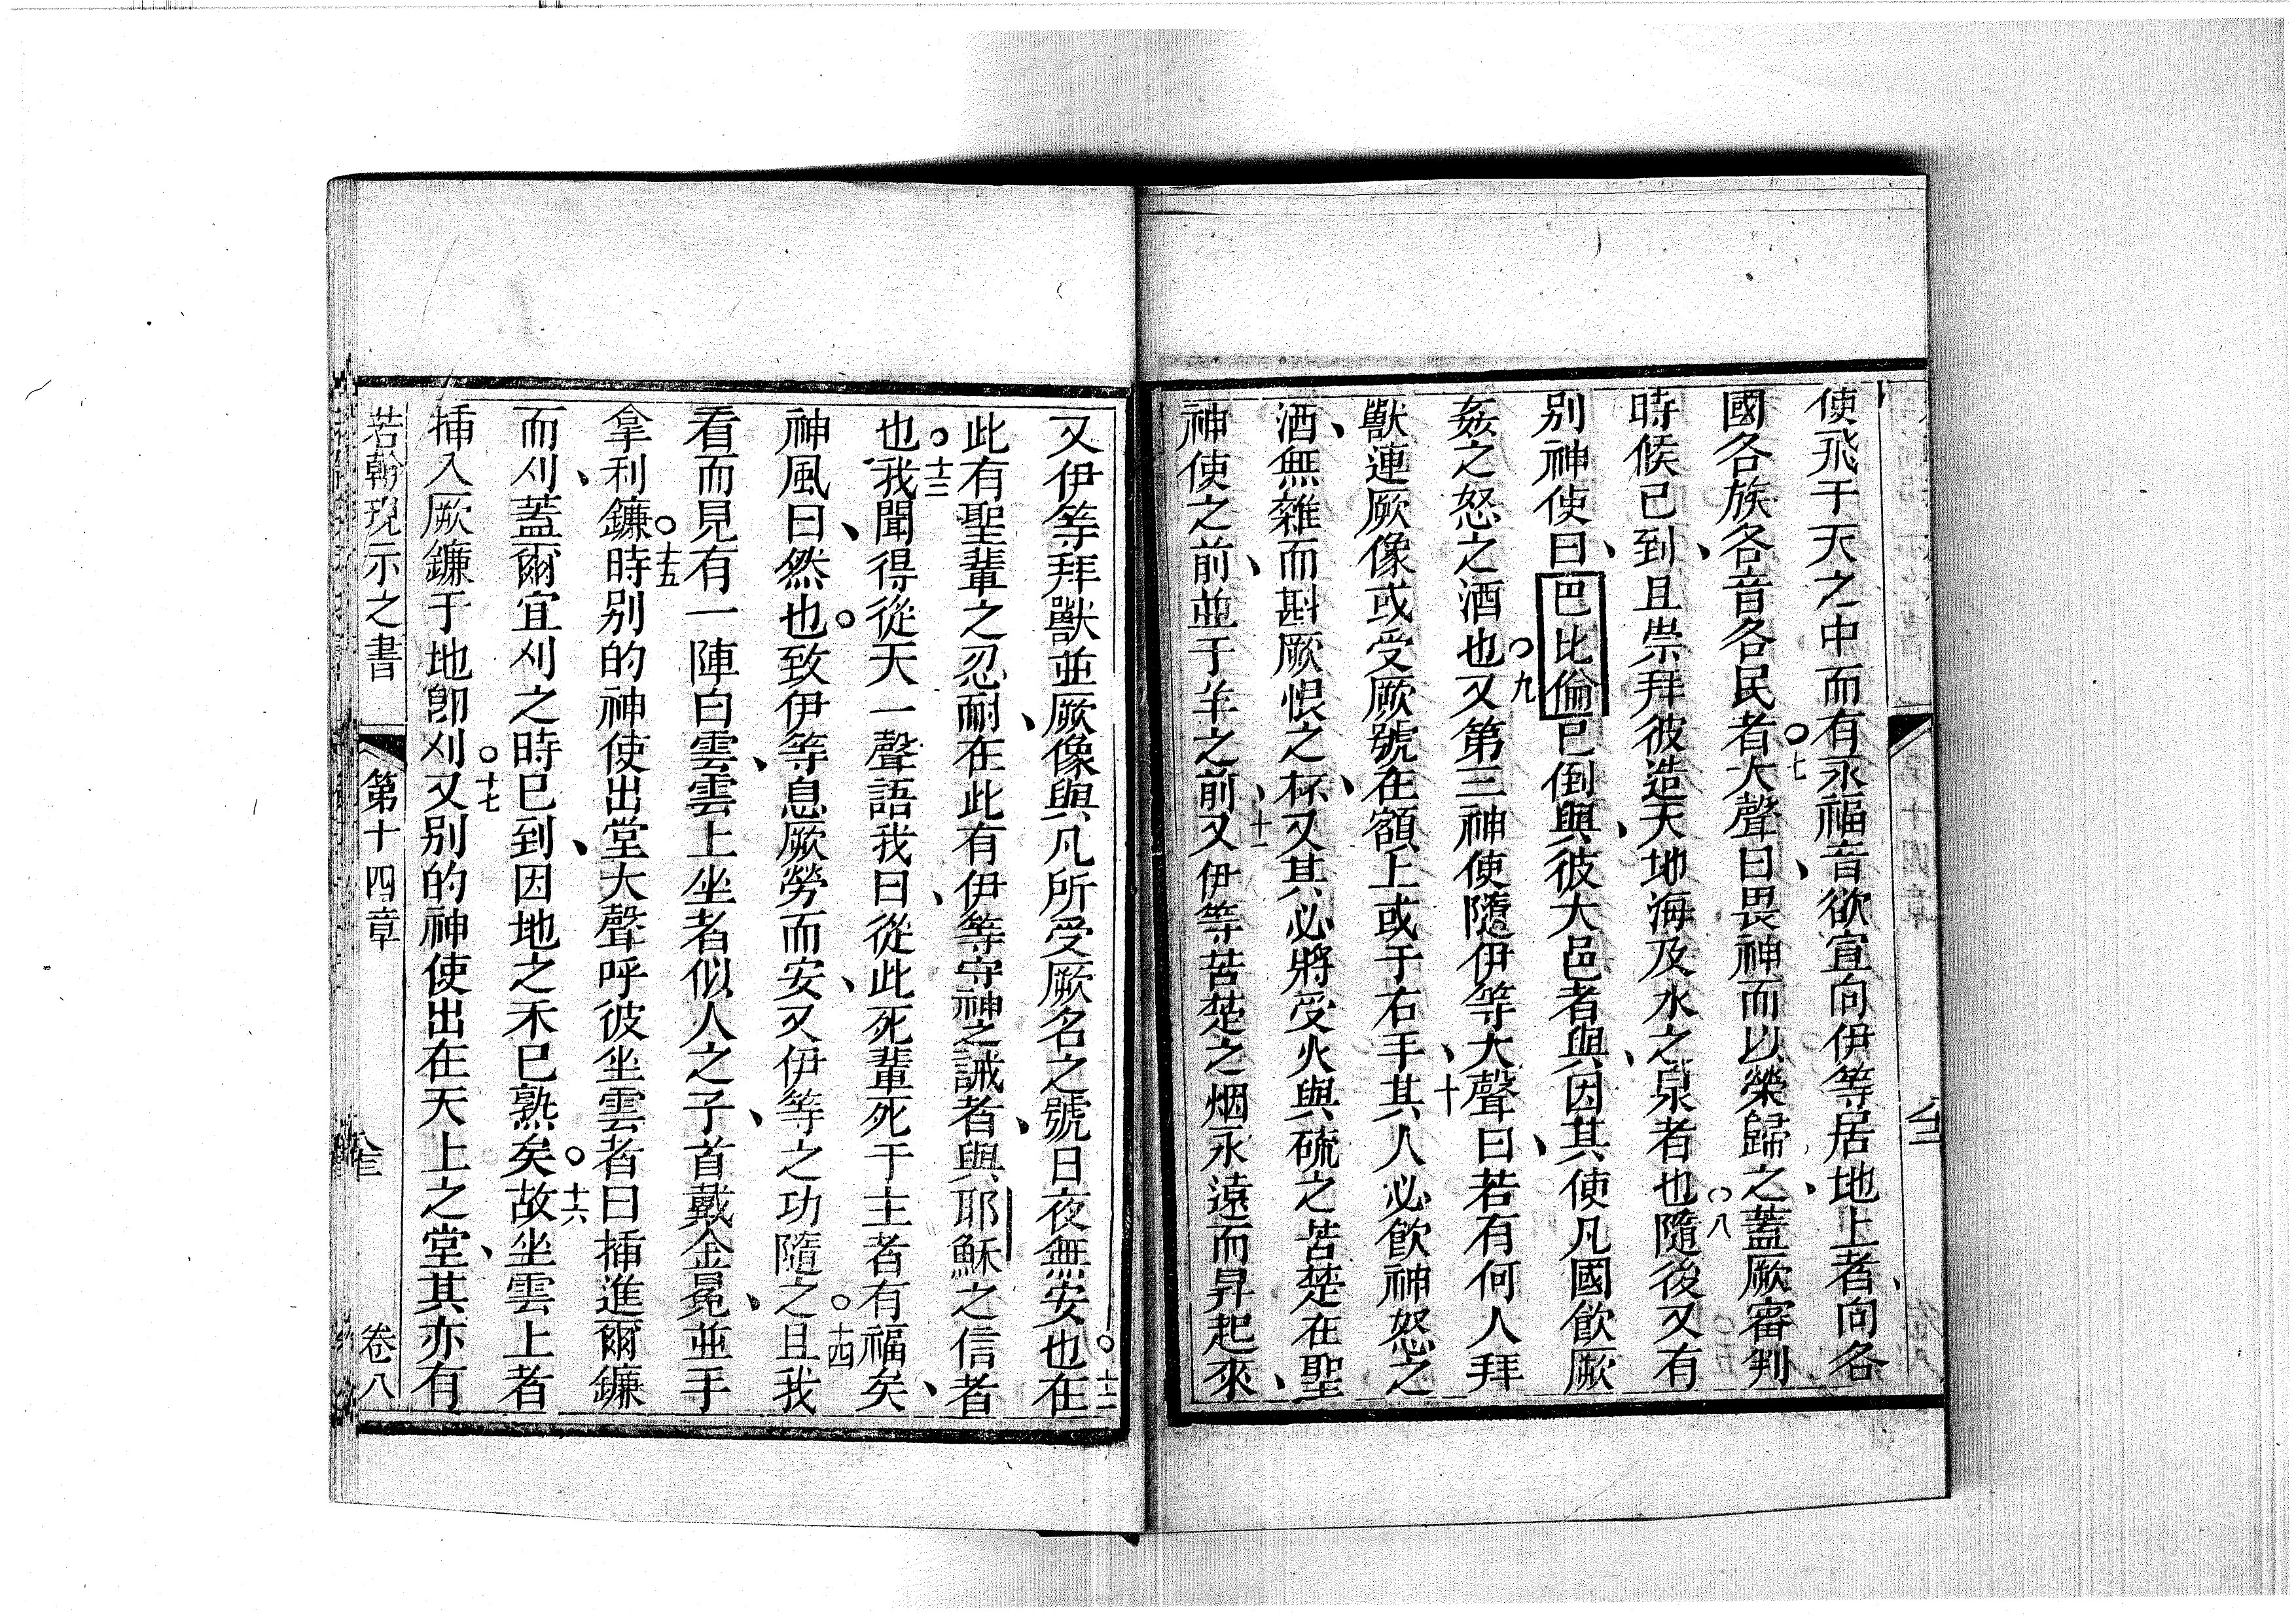 使飛于天之中而有永福音欲宣向伊等居地上者、向各
國各族各音各民者○七大聲曰、畏神而以榮歸之、蓋厥審判
時候已到、且崇拜彼造天地海及水之泉者也○八隨後又有
別神使曰、巴比倫已倒、與彼大邑者與、因其使凡國飲厥
姦之怒之酒也○九又第三神使隨伊等大聲曰、若有何人拜
獸連厥像或受厥號在額上或于右手、十其人必飲神怒之
酒、無雜而斟厥恨之杯、又其必將受火與硫之苦楚在聖
神使之前、並于羊之前、十一又伊等苦楚之烟永遠而昇起來、
又伊等拜獸並厥像與凡所受厥名之號日夜無安也○十二在
此有聖輩之忍耐、在此有伊等守神之誡者、與耶穌之信者
也○十三我聞得從天一聲語我曰、從此死輩死于主者有福矣、
神風曰、然也○致伊等息厥勞而安、又伊等之功隨之○十四且我
看而見有一陣白雲、雲上坐者似人之子、首戴金冕、並手
拿利鐮○十五時別的神使出堂大聲呼彼坐雲者曰揷進爾鐮
而刈、蓋爾宜刈之時已到、因地之禾已熟矣○十六故坐雲上者
揷入厥鐮于地卽刈○十七又別的神使出在天上之堂、其亦有
若翰現示之書 第十四章 卷八